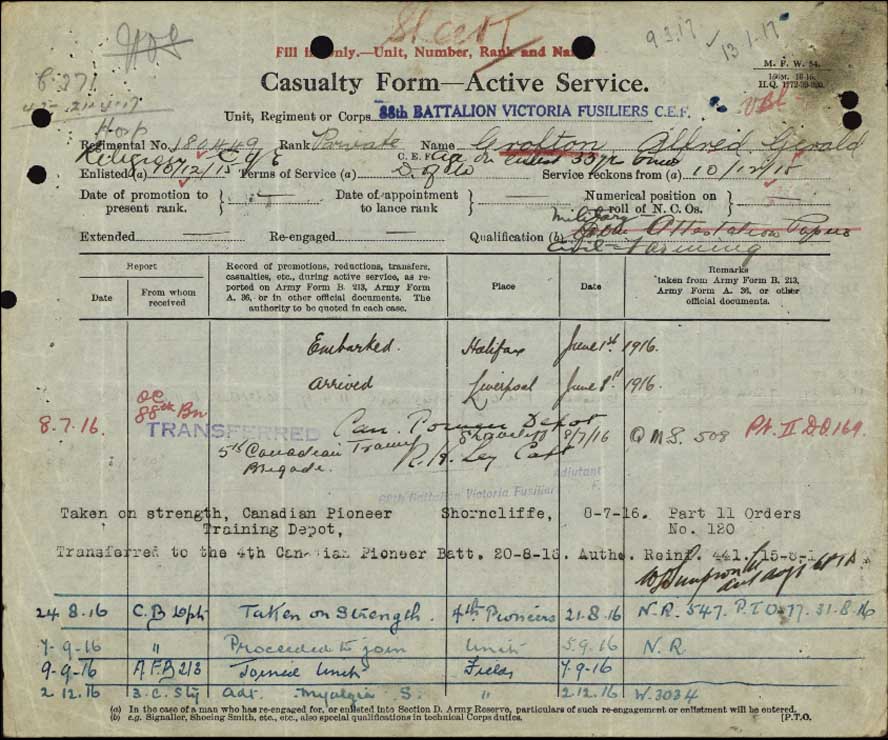 9.3.17 13.1.17
Fill in only.—Unit, Number, Rank and Name
M. F. W. 54.
Casualty Form—Active Service.
Unit, Regiment or Corps 88th BATTALION VICTORIA FUSILIERS C.E.F.
Hosp
Regimental No. 180449 Rank Private Name Grafton Alfred Gerald
Religion C of E C. E. F.
Enlisted (a) 10/12/15 Terms of Service (a) D. of W Service reckons from (a) 10/12/15
Date of promotion to present rank. Date of appointment to lance rank Numerical position on roll of N. C. Os.
Military
Extended — Re-engaged — Qualification (b) Attestation Papers
Civil - Farming
Report
Date
From whom received
Record of promotions, reductions, transfers, casualties, etc., during active service, as reported on Army Form B. 213, Army Form A. 36, or in other official documents. The authority to be quoted in each case.
Place
Date
Remarks taken from Army Form B. 213, Army Form A. 36. or other official documents.
Embarked. Halifax June 1st 1916.
Arrived Liverpool June 1916.
8.7.16. OC 88th Bn TRANSFERRED Can. Pioneer Depot Shorncliffe 8/7/16 Q M S. 508 Pt. II D.O. 169.
5th Canadian Training Brigade. Capt
Adjutant
88th Battalion Victoria Fusiliers
Taken on strength, Canadian Pioneer Training Depot, Shorncliffe, 8-7-16. Part 11 Orders No. 120
Transferred to the 4th Canadian Pioneer Batt. 20-8-16. Autho. Reinf. 441.
24.8.16 C.B Dpt Taken on Strength. 4th Pioneers 21.8.16 N.R. 547. P.T.O. 77. 31-8-16
7-9-16 " Proceeded to join Unit 5.9.16 N.R.
9-9-16 A.F.B 213 Joined Unit Field 7-9-16
2.12.16 Adt. Myalgia S. " 2.12.16 W.3034
(a) In the case of a man who has re-engaged for, or enlisted into Section D. Army Reserve, particulars of such re-engagement or enlistment will be entered.
(b) e.g. Signaller, Shoeing Smith, etc., etc., also special qualifications in technical Corps duties. [P.T.O.